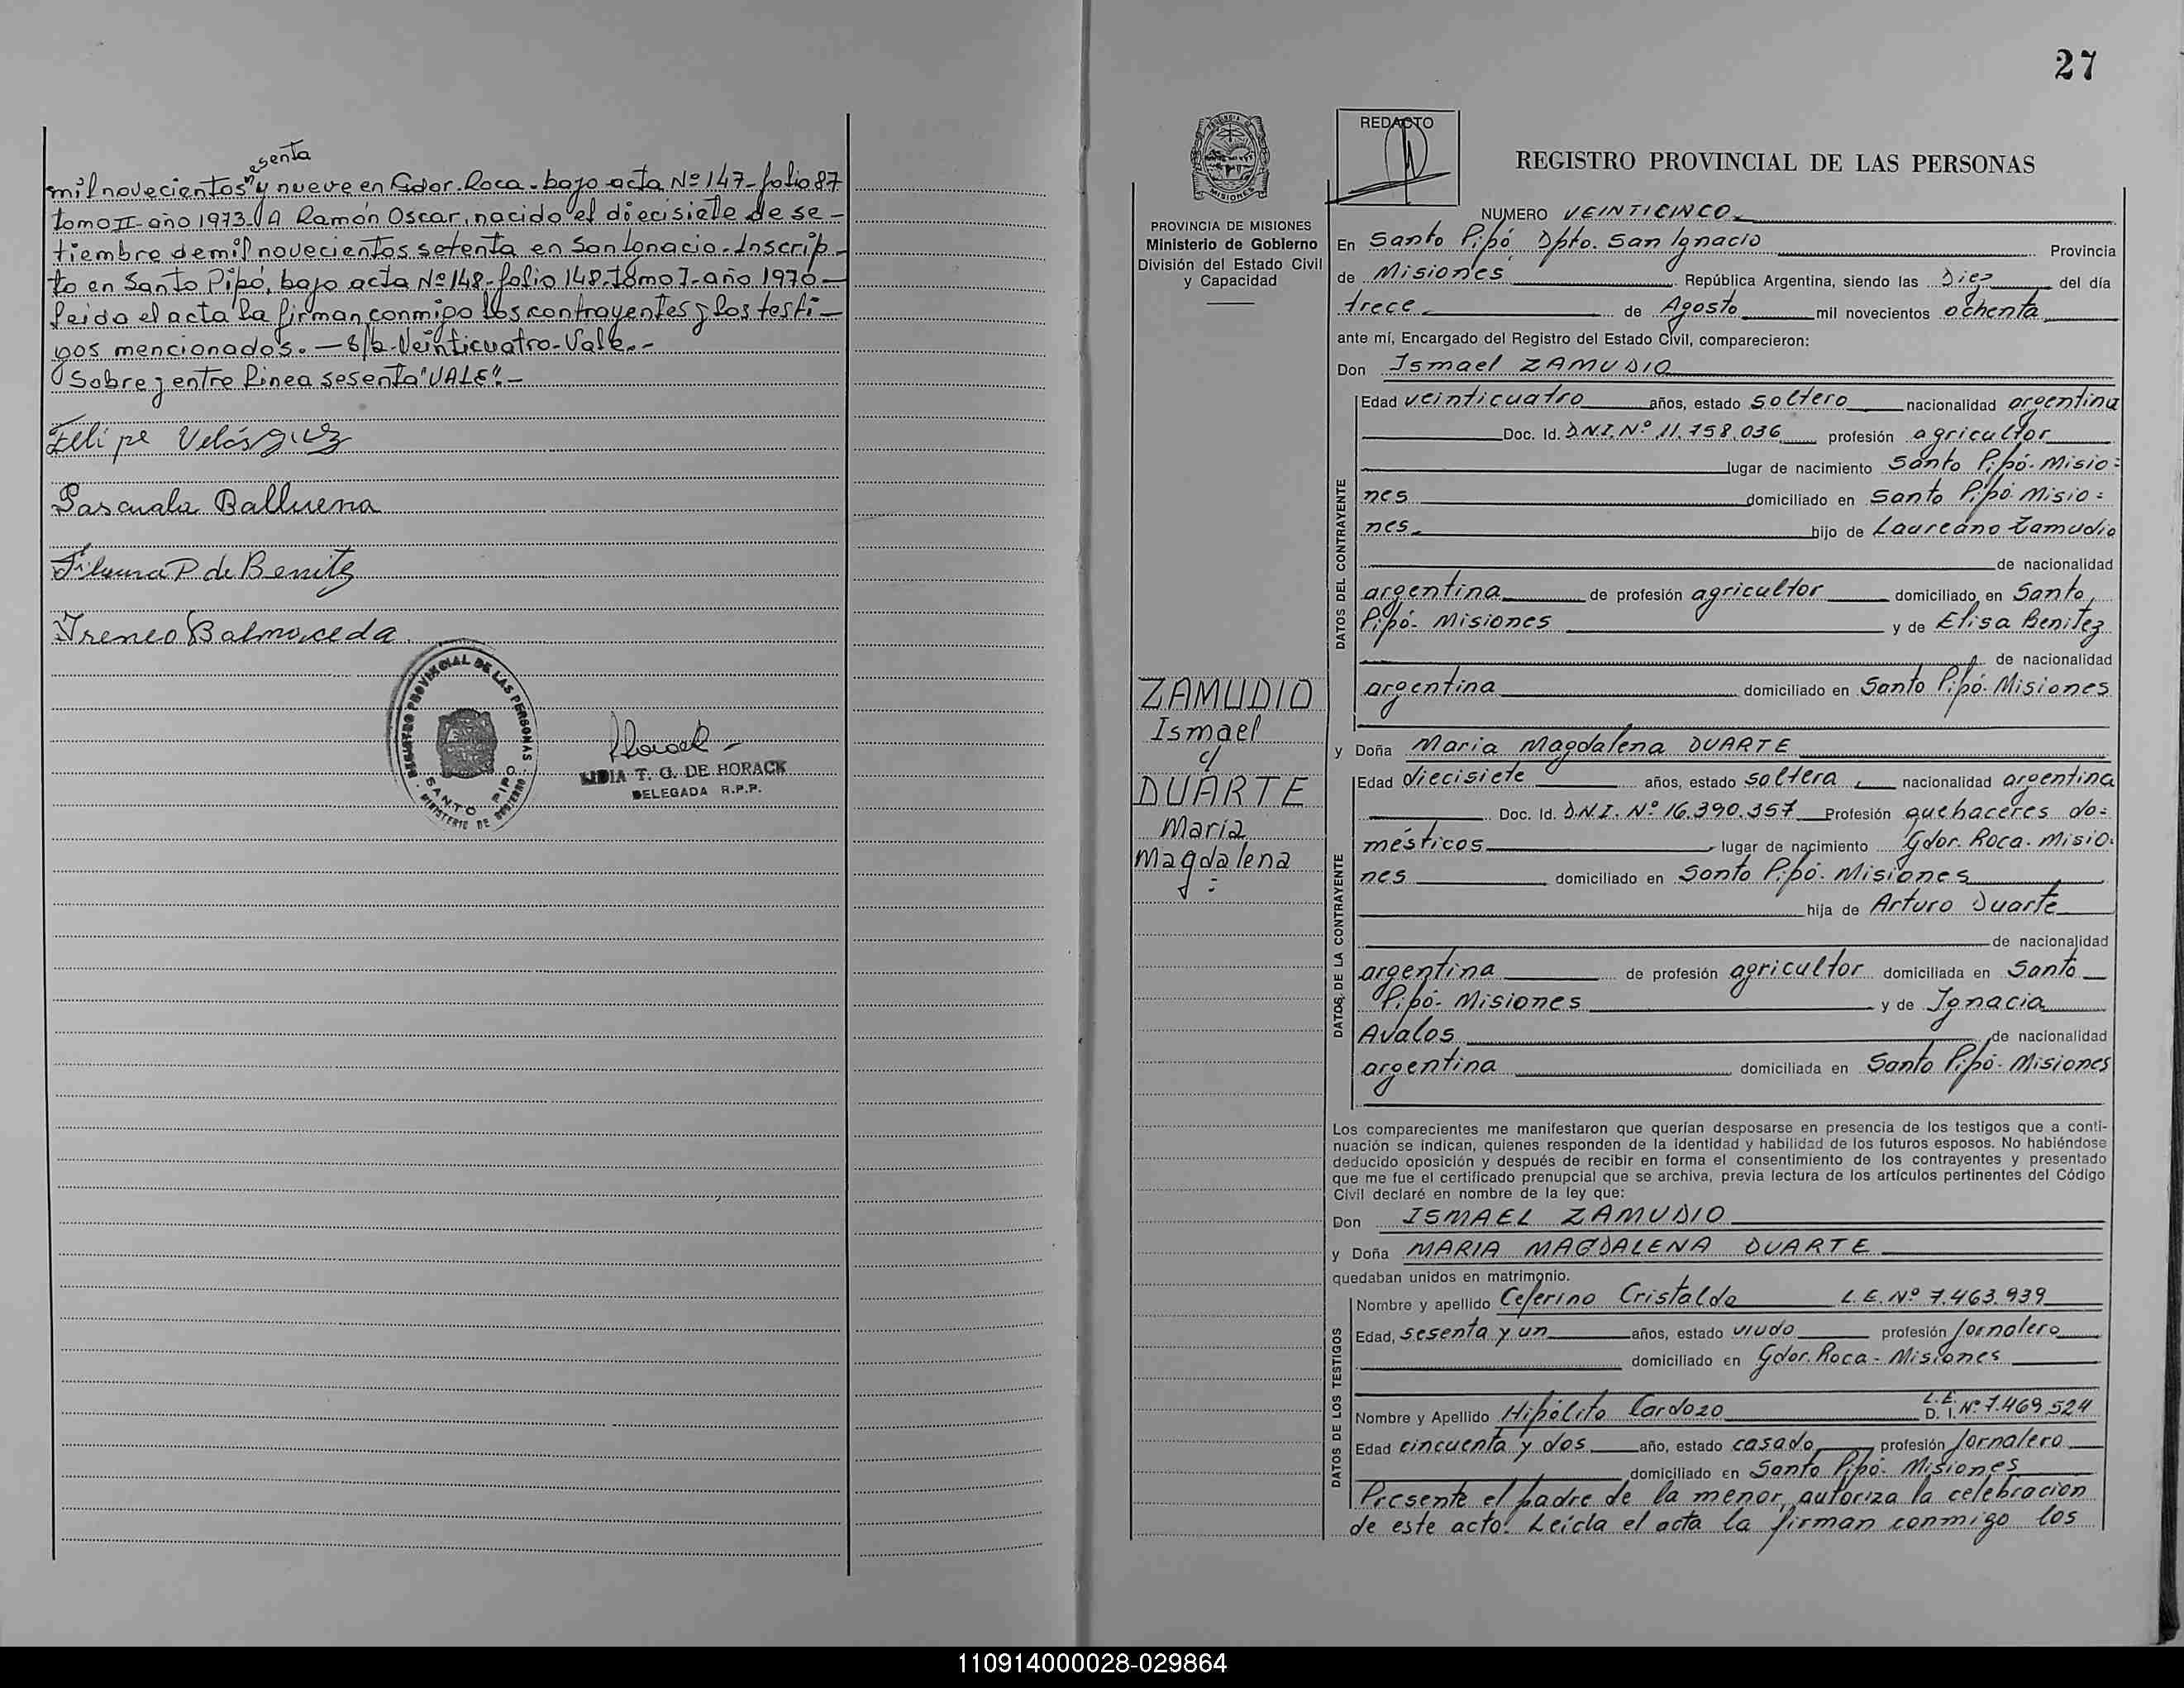 mil novecientos sesenta y nueve en Gdor. Roca. bajo acta Nº 147- folio 87
tomo II- año 1973. A Ramón Oscar, nacido el diecisiete de se-
tiembre de mil novecientos setenta en San Ignacio. Inscrip-
to en Santo Pipó, bajo acta Nº 148- folio 148- tomo I- año 1970-
leida el acta la firman conmigo los contrayentes y los testi-
gos mencionados. - s/b- Veinticuatro- Vale.-
Sobre y entre linea sesenta "VALE".-
Felipe Velásquez
Pascuala Balluena
Filomena P de Benitz
Ireneo Balmaceda
REGISTRO PROVINCIAL DE LAS PERSONAS
SANTO PIPO
MINISTERIO DE GOBIERNO
LIDIA T. G. DE HORACK
DELEGADA R.P.P.
27
PROVINCIA DE MISIONES
Ministerio de Gobierno
División del Estado Civil
y Capacidad
ZAMUDIO
Ismael
c/
DUARTE
Maria
Magdalena
REDACTO
REGISTRO PROVINCIAL DE LAS PERSONAS
NUMERO VEINTICINCO
En Santo Pipó, Dpto. San Ignacio Provincia
de Misiones República Argentina, siendo las Diez del día
trece de Agosto mil novecientos ochenta
ante mí, Encargado del Registro del Estado Civil, comparecieron:
Don Ismael ZAMUDIO
DATOS DEL CONTRAYENTE
Edad veinticuatro años, estado soltero nacionalidad argentina
Doc. Id. D.N.I. Nº 11.758.036 profesión agricultor
lugar de nacimiento Santo Pipó- Misio=
nes domiciliado en Santo Pipó- Misio=
nes hijo de Laureano Zamudio
de nacionalidad
argentina de profesión agricultor domiciliado en Santo
Pipó- Misiones y de Elisa Benitez
de nacionalidad
argentina domiciliado en Santo Pipó- Misiones
y Doña Maria Magdalena DUARTE
DATOS DE LA CONTRAYENTE
Edad diecisiete años, estado soltera nacionalidad argentina
Doc. Id. D.N.I. Nº 16.390.357 Profesión quehaceres do=
mésticos lugar de nacimiento Gdor. Roca- Misio=
nes domiciliado en Santo Pipó- Misiones
hija de Arturo Duarte
de nacionalidad
argentina de profesión agricultor domiciliada en Santo
Pipó- Misiones y de Ignacia
Avalos de nacionalidad
argentina domiciliada en Santo Pipó- Misiones
Los comparecientes me manifestaron que querían desposarse en presencia de los testigos que a conti-
nuación se indican, quienes responden de la identidad y habilidad de los futuros esposos. No habiéndose
deducido oposición y después de recibir en forma el consentimiento de los contrayentes y presentado
que me fue el certificado prenupcial que se archiva, previa lectura de los artículos pertinentes del Código
Civil declaré en nombre de la ley que:
Don ISMAEL ZAMUDIO
y Doña MARIA MAGDALENA DUARTE
quedaban unidos en matrimonio.
DATOS DE LOS TESTIGOS
Nombre y apellido Ceferino Cristaldo L.E. Nº 7.463.939
Edad, sesenta y un años, estado viudo profesión Jornalero
domiciliado en Gdor. Roca- Misiones
Nombre y Apellido Hipólito Cardozo L.E. D. I. Nº 7.469.524
Edad cincuenta y dos año, estado casado profesión Jornalero
domiciliado en Santo Pipó- Misiones
Presente el padre de la menor, autoriza la celebracion
de este acto. Leída el acta la firman conmigo los
110914000028-029864